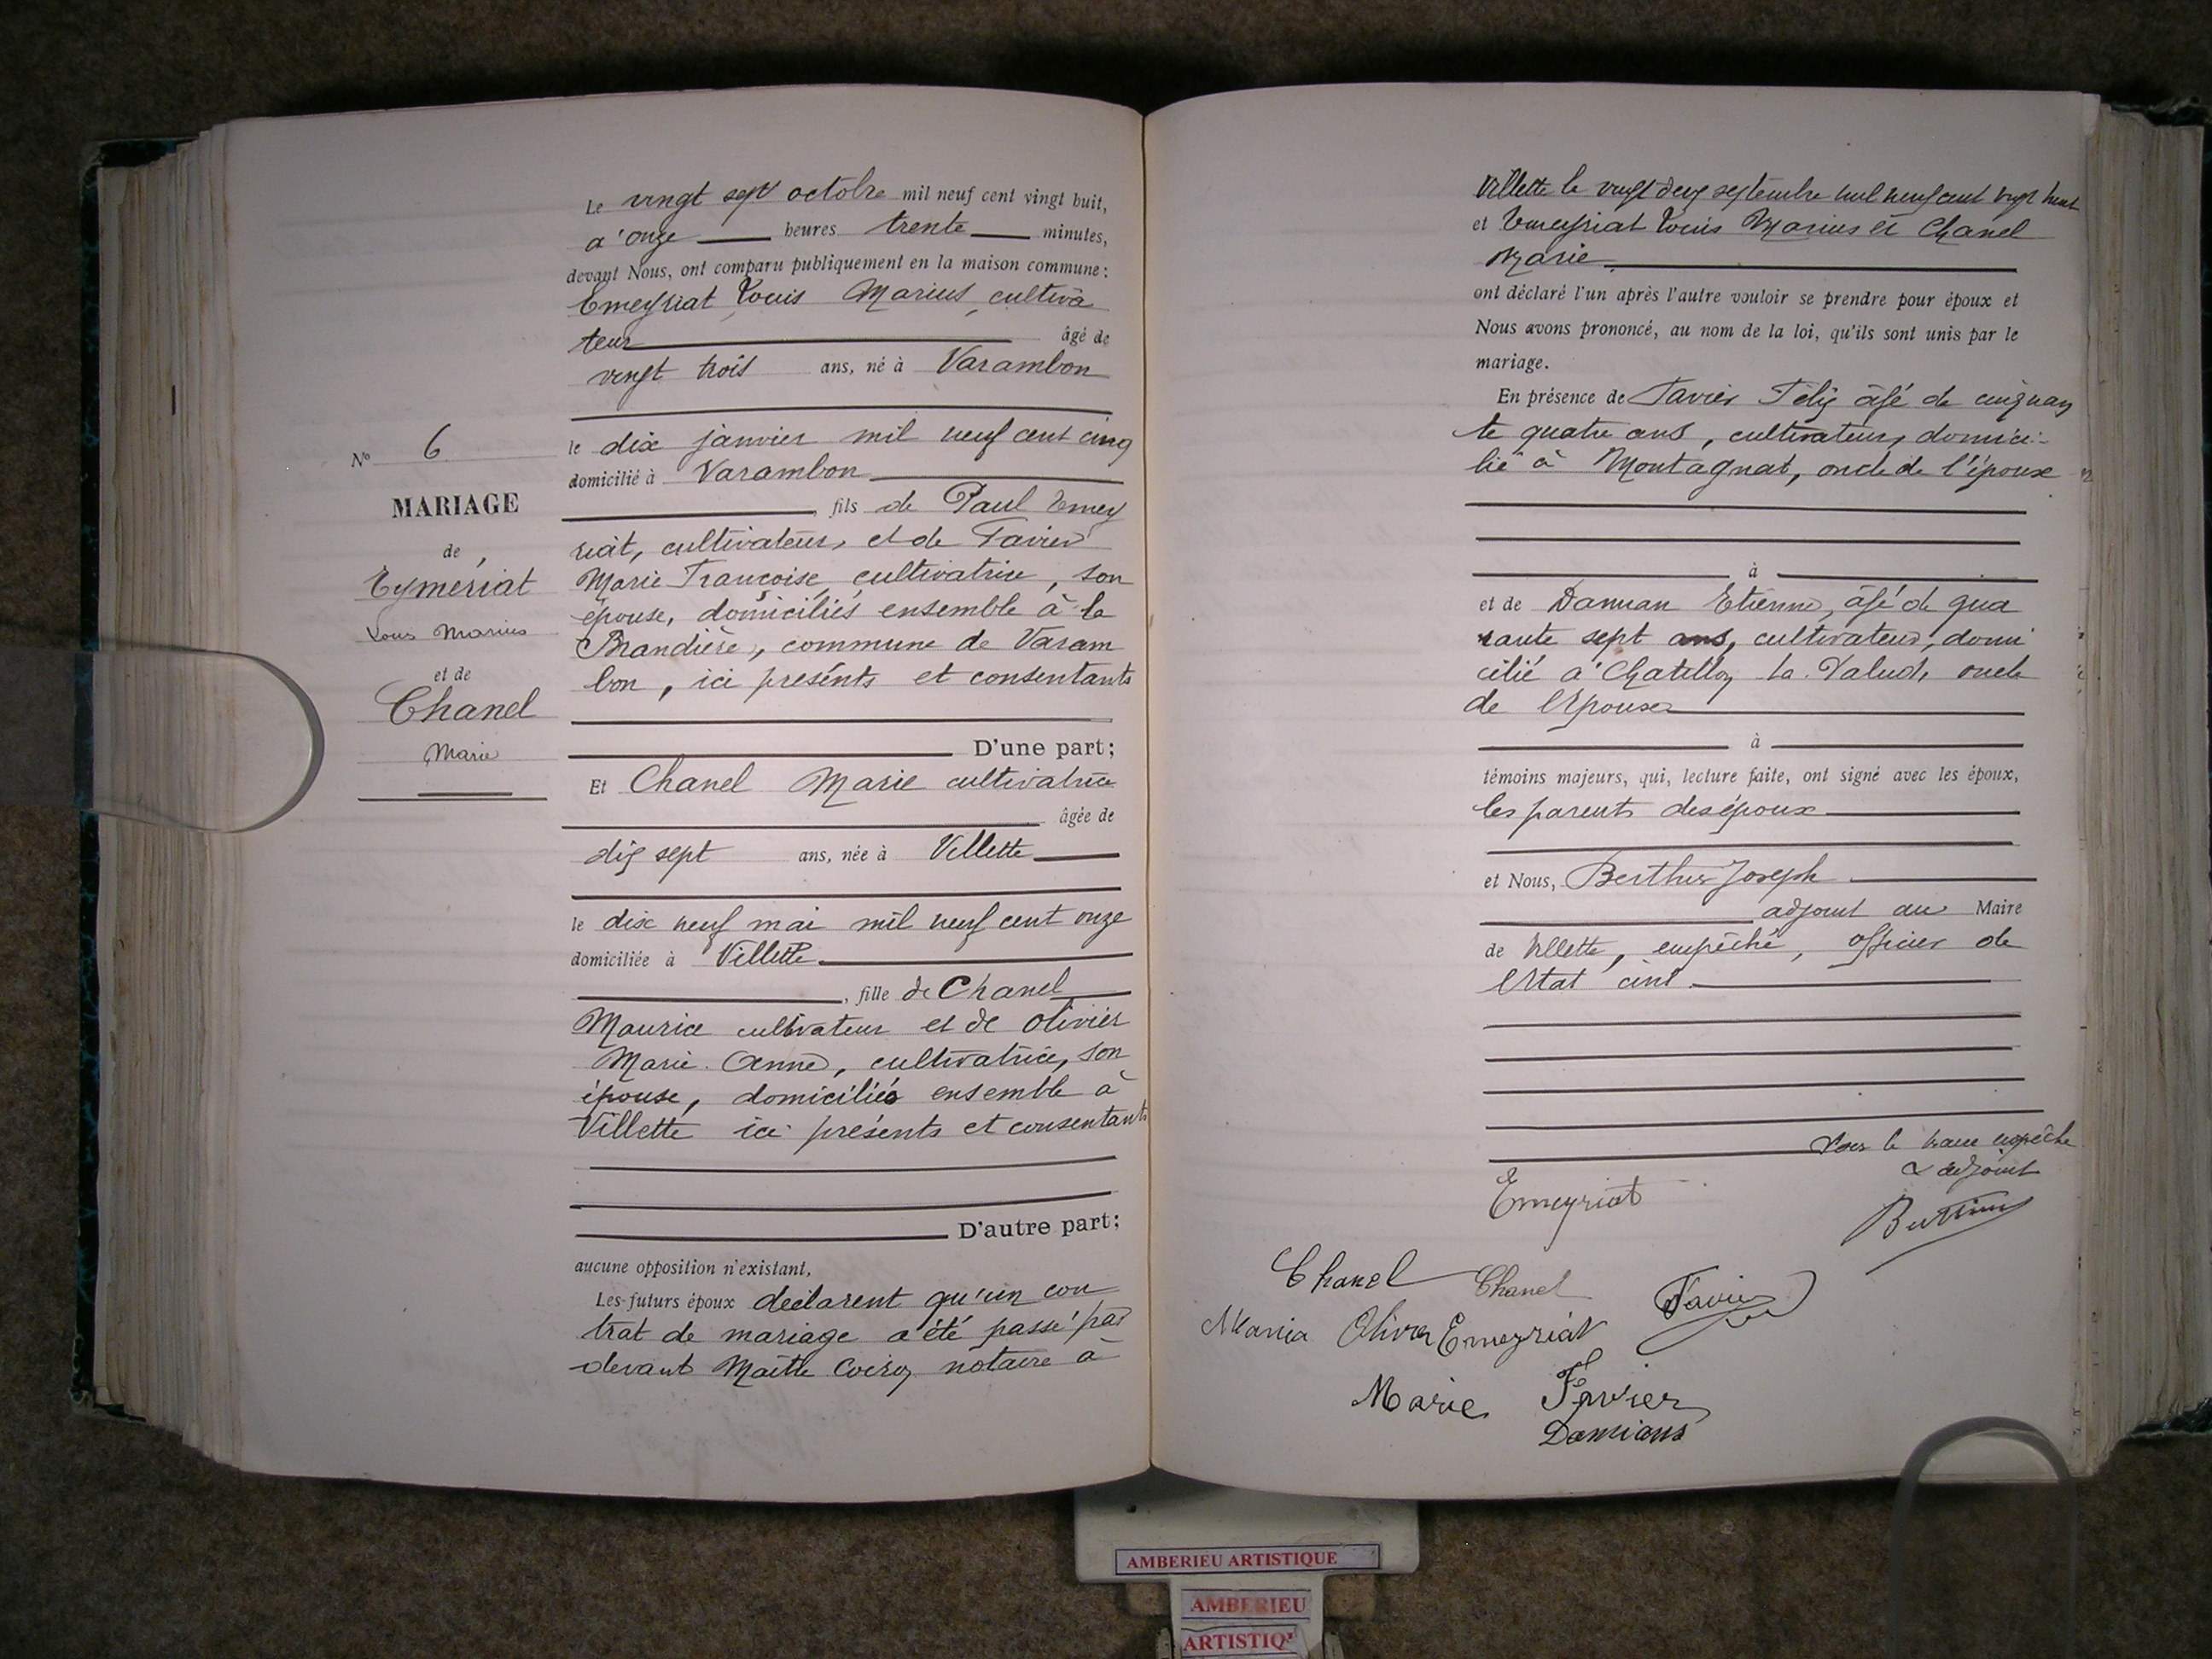 Le vingt sept octobre mil neuf cent vingt huit,
à onze heures trente minutes,
devant Nous, ont comparu publiquement en la maison commune :
Emeyriat Louis Marius, cultiva
teur âgé de
vingt trois ans, né à Varambon
le dix janvier mil neuf cent cinq
domicilié à Varambon
, fils de Paul Emey
riat, cultivateur, et de Favier
Marie Françoise, cultivatrice, son
épouse, domiciliés ensemble à la
Brandière, commune de Varam
bon, ici présents et consentants
D'une part;
Et Chanel Marie cultivatrice
âgée de
dix sept ans, née à Villette
le dix neuf mai mil neuf cent onze
domiciliée à Villette
, fille de Chanel
Maurice cultivateur et de Olivier
Marie Anne, cultivatrice, son
épouse, domiciliés ensemble à
Villette ici présents et consentants
D'autre part;
aucune opposition n'existant,
Les futurs époux déclarent qu'un con
trat de mariage a été passé par
devant Maître notaire à
N° 6
MARIAGE
de
Eymeriat
Louis Marius
et de
Chanel
Marie
Villette le vingt deux septembre mil neuf cent vingt huit
et Emeyriat Louis Marius et Chanel
Marie
ont déclaré l'un après l'autre vouloir se prendre pour époux et
Nous avons prononcé, au nom de la loi, qu'ils sont unis par le
mariage.
En présence de Favier Félix âgé de cinquan
te quatre ans, cultivateur, domici-
lié à Montagnat, oncle de l'époux
à
et de Damian Etienne, âgé de qua
rante sept ans, cultivateur, domi
cilié à Chatillon la Palud, oncle
de l'épouse
à
témoins majeurs, qui, lecture faite, ont signé avec les époux,
les parents des époux
et Nous, Berthier Joseph
adjoint au Maire
de Villette, empêché, officier de
l'Etat civil.
Pour le maire empêché
L'adjoint
Emeyriat
Berthier
Chanel Chanel Favier
Maria Olivier Emeyriat
Marie Favier
Damians
AMBERIEU ARTISTIQUE
AMBERIEU
ARTISTIQ